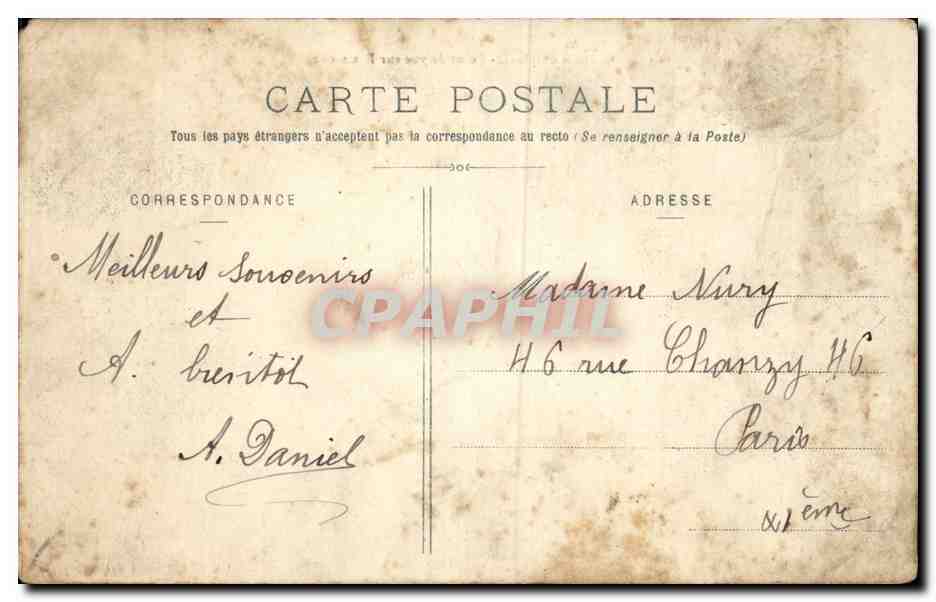 CARTE POSTALE
Tous les pays étrangers n'acceptent pas la correspondance au recto (Se renseigner à la Poste)
CORRESPONDANCE
Meilleurs souvenirs
et
A. bientôt
A. Daniel
ADRESSE
Madame Nury
46 rue Chanzy 46
Paris
XIème
CPAPHIL